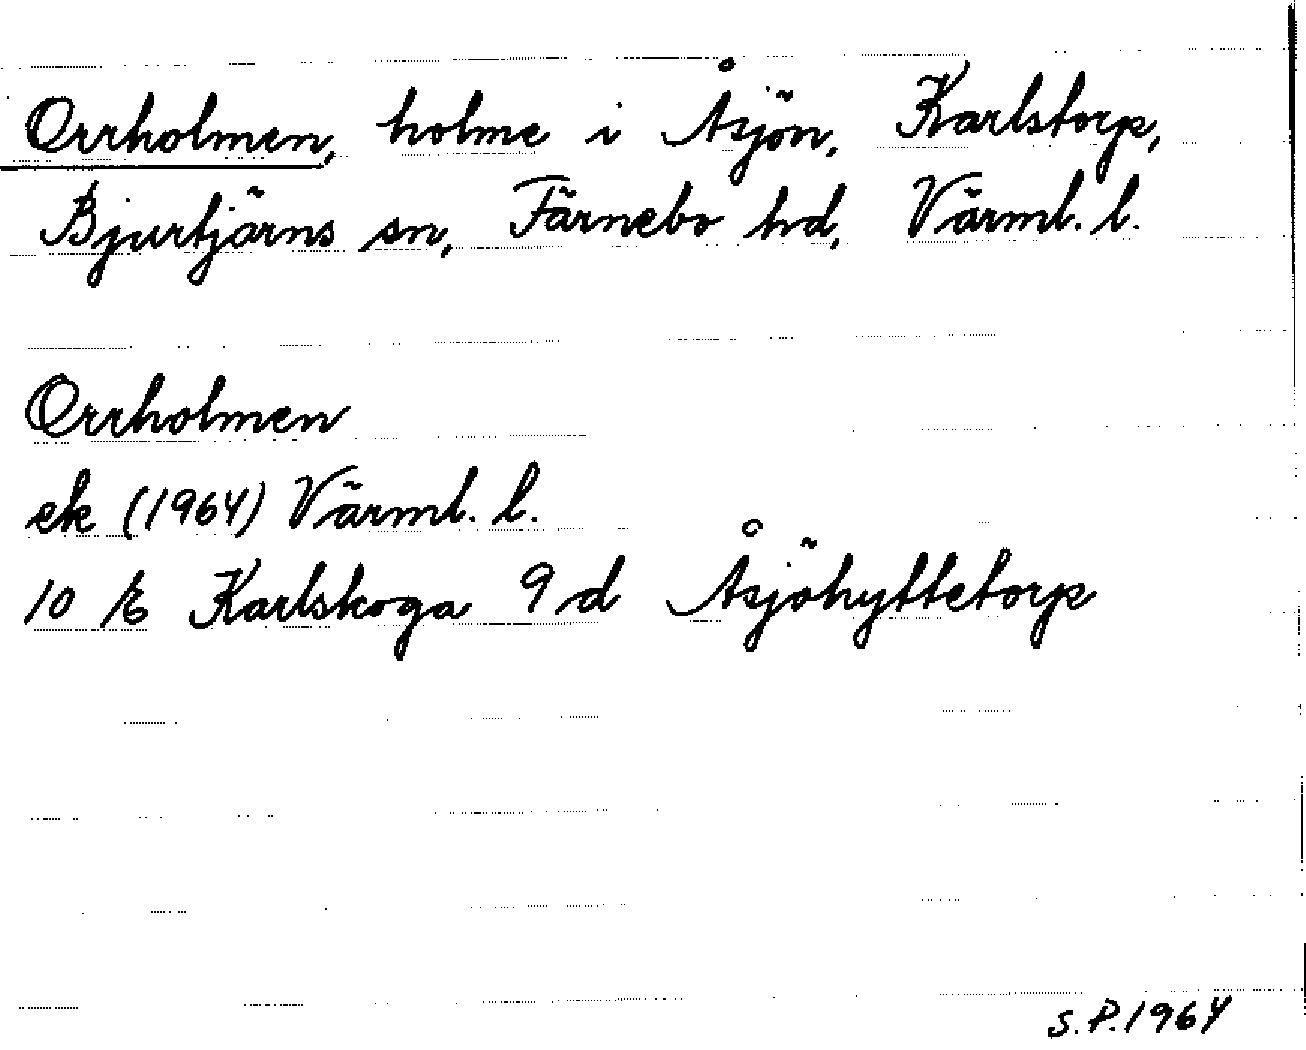 Orrholmen, holme i Åsjön, Karlstorp,
Bjurtjärns sn, Färnebo hd, Värml. l.
Orrholmen
ek (1964) Värml. l.
10 E Karlskoga 9 d Åsjöhyttetorp
S.P. 1964